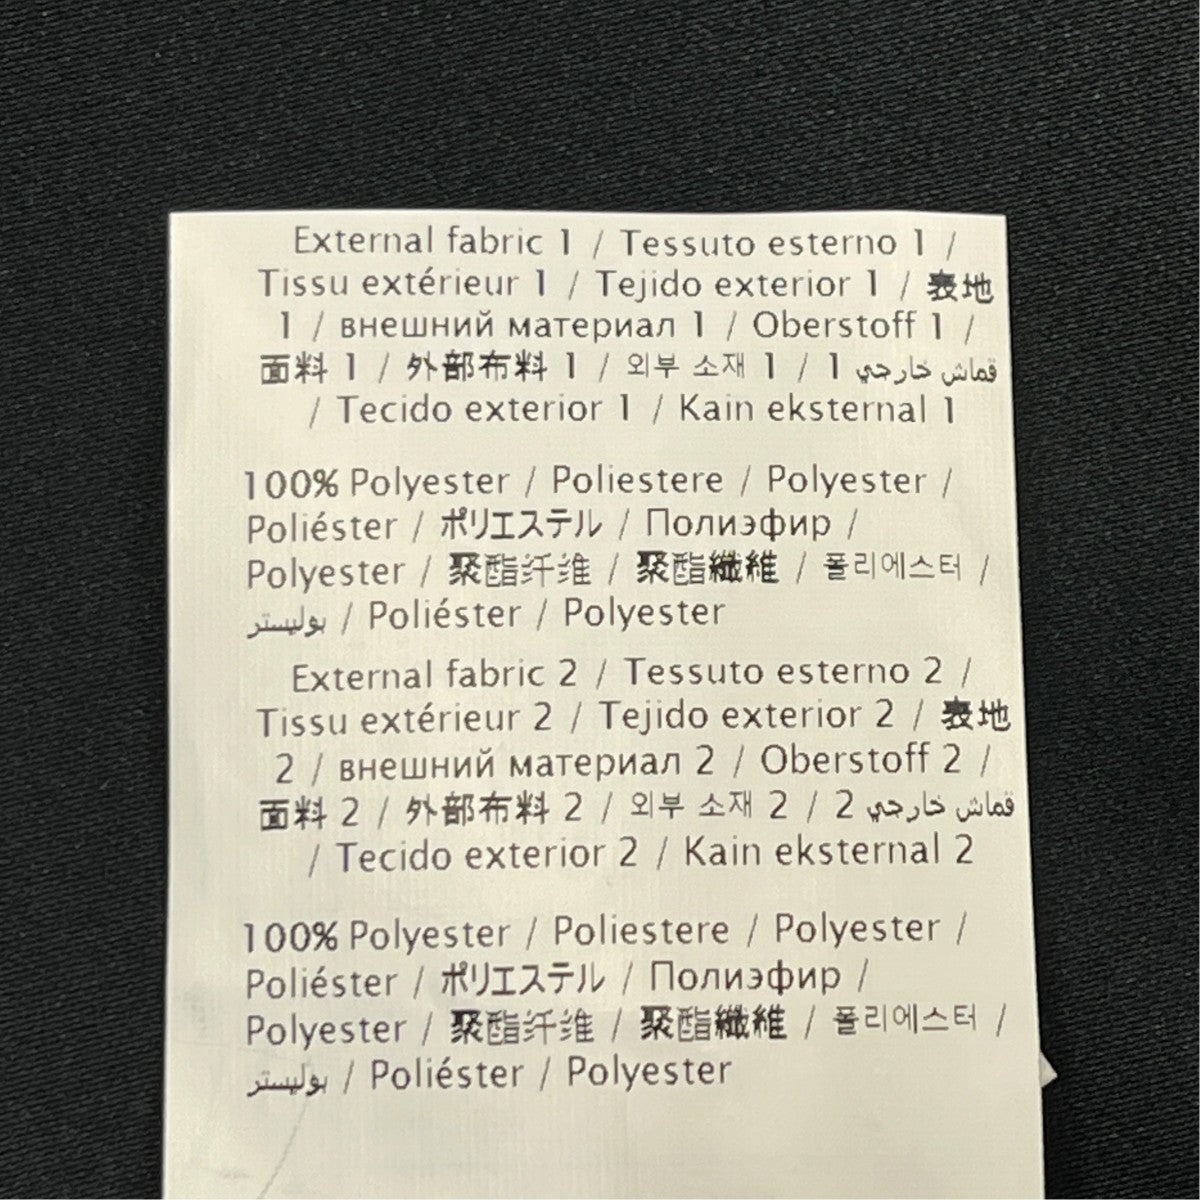 External fabric 1 / Tessuto esterno 1 /
Tissu extérieur 1 / Tejido exterior 1 / 表地
1 / внешний материал 1 / Oberstoff 1 /
面料 1 / 外部布料 1 / 외부 소재 1 / 1 قماش خارجي
/ Tecido exterior 1 / Kain eksternal 1
100% Polyester / Poliestere / Polyester /
Poliéster / ポリエステル / Полиэфир /
Polyester / 聚酯纤维 / 聚酯纖維 / 폴리에스터 /
بوليستر / Poliéster / Polyester
External fabric 2 / Tessuto esterno 2 /
Tissu extérieur 2 / Tejido exterior 2 / 表地
2 / внешний материал 2 / Oberstoff 2 /
面料 2 / 外部布料 2 / 외부 소재 2 / 2 قماش خارجي
/ Tecido exterior 2 / Kain eksternal 2
100% Polyester / Poliestere / Polyester /
Poliéster / ポリエステル / Полиэфир /
Polyester / 聚酯纤维 / 聚酯纖維 / 폴리에스터 /
بوليستر / Poliéster / Polyester